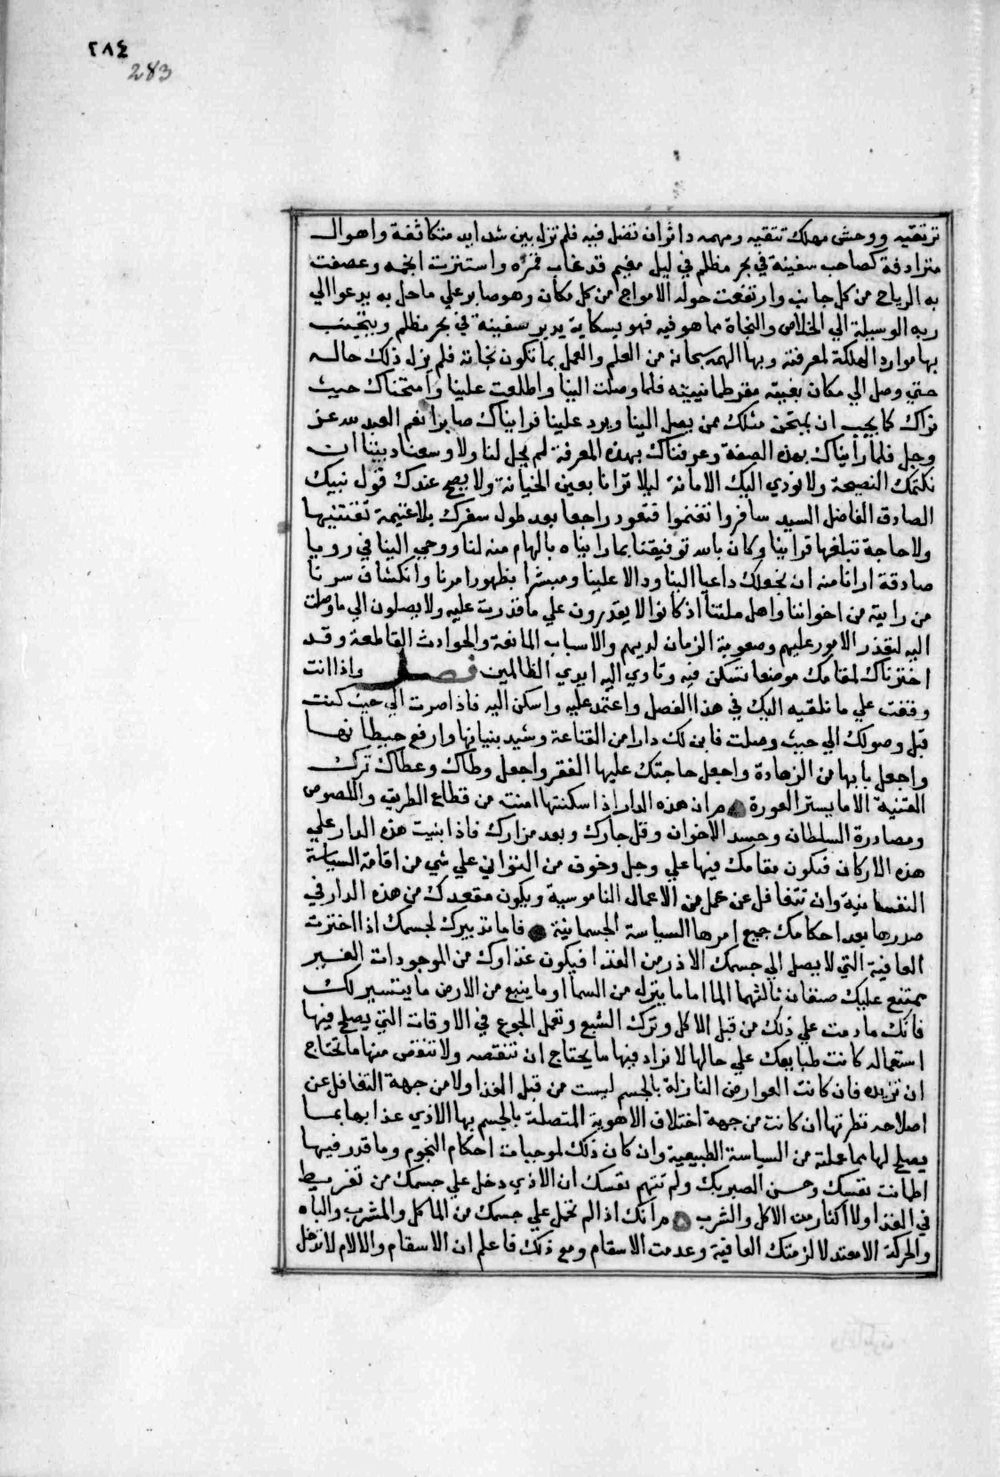 ٢٨٤
283
ترتقيه ووحش مهلك تتقيه ومهمه داثر ان تضل فيه فلم تزل بين شدايد متكاثفة واهوال
مترادفة كصاحب سفينة في بحر مظلم في ليل مغيم قد غاب قمره واستترت انجمه وعصفت
به الرياح من كل جانب وارتفعت حوله الامواج من كل مكان وهو صابر علي ماحل به يدعوا الي
ربه الوسيلة الي الخلاص والنجاة مما هو فيه فهو بسكاية يدبر سفينة في بحر مظلم ويتجنب
بها موارد الهلكة لمعرفته وبها الهمه سبحانه من العلم والعمل بما تكون نجاته فلم يزل ذلك حاله
حتي وصل الي مكان بغيته مقر طمانينته فلما وصلت الينا واطلعت علينا وامتحناك حيث
نراك كما يجب ان يمتحن مثلك ممن يصل الينا ويرد علينا فرايناك صابرا نعم العبد لله عز
وجل فلما رأيناك بهذه الصفة وعرفناك بهذه المعرفة لم يحل لنا ولا وسعنا ديننا ان
نكتمك النصيحة ولا نودي اليك الامانة ليلا ترانا بعين الخيانة ولا يصح عندك قول نبيك
الصادق الفاضل السيد سافروا تغنموا فتعود راجعا بعد طول سفرك بلا غنيمة تغتنيها
ولا حاجة تبلغها فراينا وكان بالله توفيقنا بما رايناه بالهام منه لنا ووحي الينا في رويا
صادقة ارانا منه ان نجعلك داعيا الينا ودالا علينا ومبشرا بظهور امرنا وانكشاف سرنا
من رايته من اخواننا واهل ملتنا اذ كانوا لا يقدرون علي ما قدرت عليه ولا يصلون الي ماوصلت
اليه لتعذر الامور عليهم وصعوبة الزمان لديهم والاسباب المانعة والحوادث القاطعة وقد
اخترناك لمقامك موضعا تسكن فيه وتاوي اليه ايدي الظالمين فصل واذا انت
وقفت علي ما نلقيه اليك في هذا الفصل واعتمد عليه واسكن اليه فاذا صرت الي حيث كنت
قبل وصولك الي حيث وصلت فابن لك دارا من القناعة وشيد بنيانها وارفع حيطانها
واجعل بابها من الزهادة واجعل حاجتك عليها الفقر واجعل وطاك وعطاك ترك
القنية الا ما يستر العورة مر ان هذه الدار اذا سكنتها امنت من قطاع الطريق واللصوص
ومصادرة السلطان وحسد الاخوان وقل جارك وبعد مزارك فاذا بنيت هذه الدار علي
هذه الاركان فيكون مقامك فيها علي وجل وخوف من التواني علي شي من اقامة السياسة
النفسانية وان تتغافل عن عمل من الاعمال الناموسية ويكون مقعدك من هذه الدار في
صدرها بعد احكامك جميع امرها السياسة الجسمانية فاما تدبيرك لجسمك اذا اخترت
العافية التي لا يصل الي جسمك الاذر من الغذا فيكون غذاوك من الموجودات الغير
ممتنع عليك صنفان ثالثهما الما اما ما ينزل من السما او ما ينبع من الارض ما يتسير لك
فانك ما دمت علي ذلك من قبل الاكل وترك الشبع وتحمل الجوع في الاوقات التي يصلح فيها
استعماله كانت طبايعك علي حالها لا تزاد فيها ما يحتاج ان تنقصه ولا تنقص منها ما تحتاج
ان تزيده فان كانت العوارض النازلة بالجسم ليست من قبل الغذا ولا من جهة التغافل عن
اصلاحه نظرتها ان كانت من جهة اختلاف الاهوية المتصلة بالجسم بها الاذي عذابها بما
يصلح لها مما عملته من السياسة الطبيعية وان كان ذلك لموجبات احكام النجوم وما قدر فيها
اطمانت نفسك وحسن الصبر بك ولم تتهم نفسك ان الاذي دخل علي جسمك من تفريط
في الغذا ولا اكثار من الاكل والشرب مر انك اذا لم تحمل علي جسمك من الماكل والمشرب والباه
والحركة الا معتدلا لزمتك العافية وعدمت الاسقام ومع ذلك فاعلم ان الاسقام والالام لا تدخل